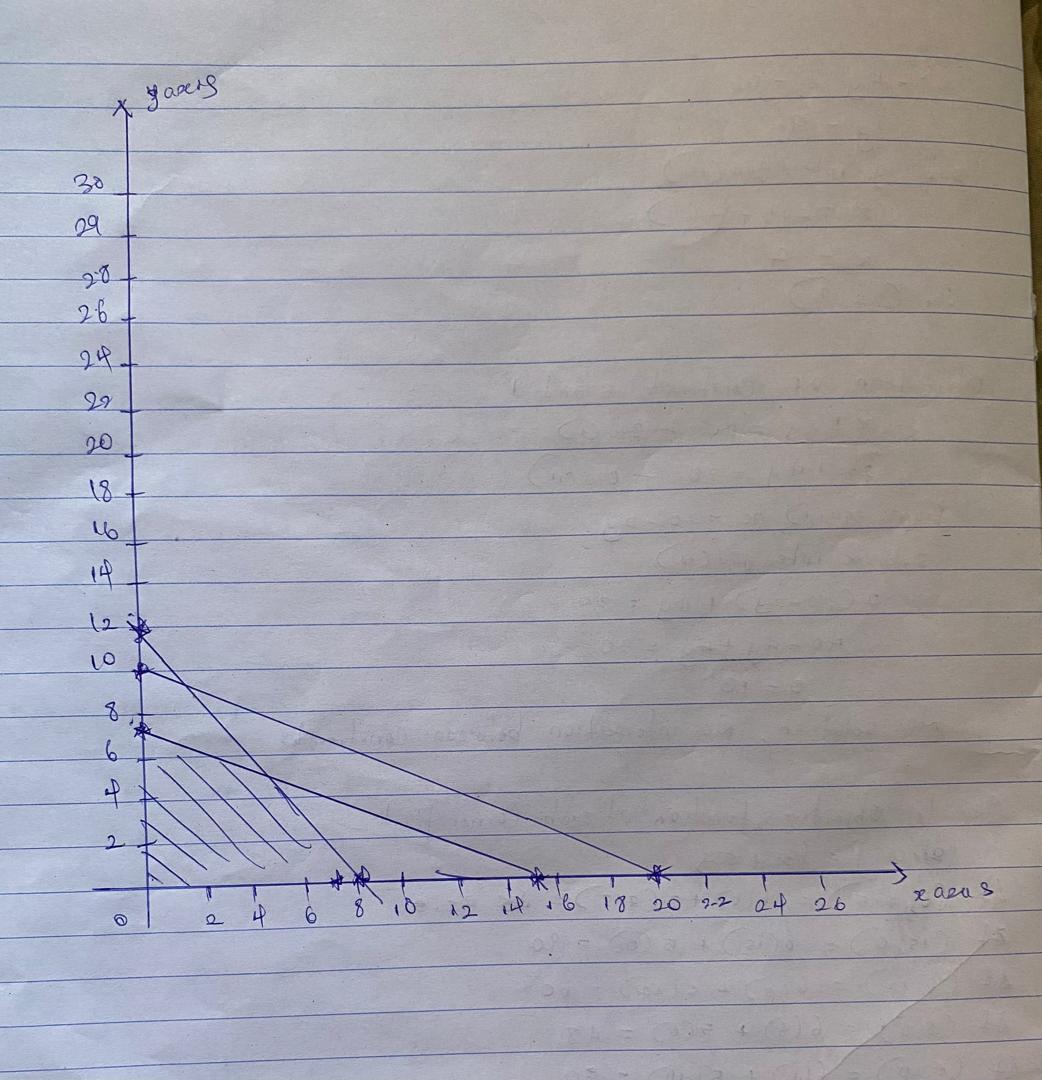 y axis
30
29
28
26
24
22
20
18
16
14
12
10
8
6
4
2
0 2 4 6 8 10 12 14 16 18 20 22 24 26
x axis